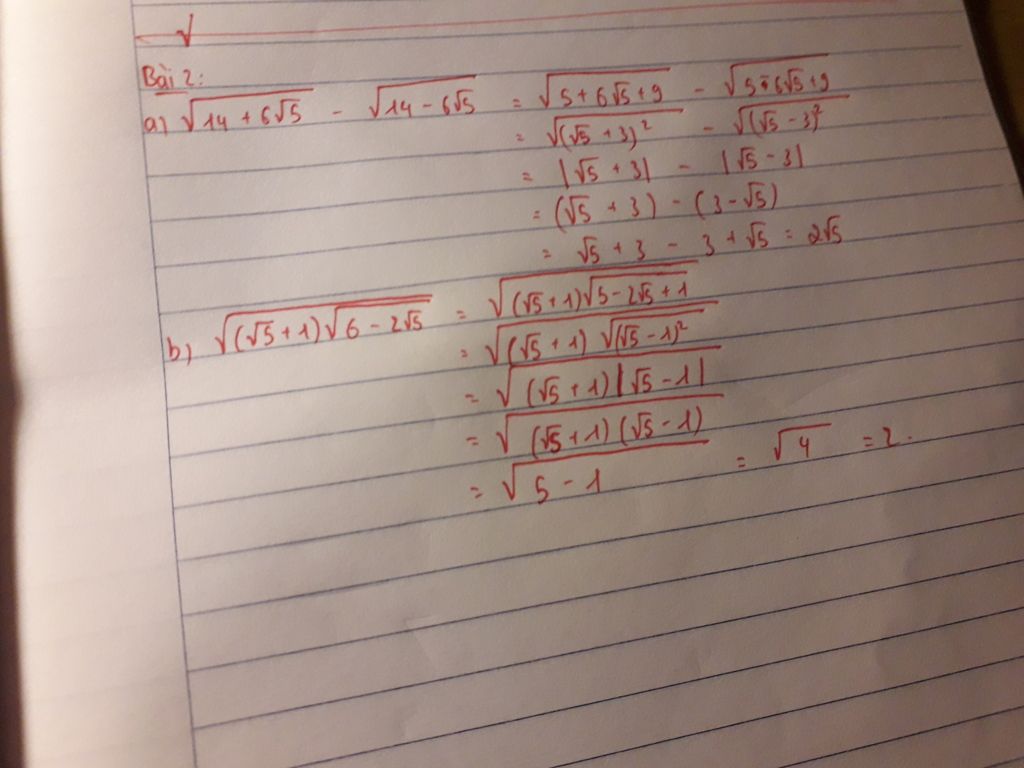 √
Bài 2:
a) √(14 + 6√5) - √(14 - 6√5) = √(5 + 6√5 + 9) - √(5 - 6√5 + 9)
= √((√5 + 3)²) - √((√5 - 3)²)
= |√5 + 3| - |√5 - 3|
= (√5 + 3) - (3 - √5)
= √5 + 3 - 3 + √5 = 2√5
b) √((√5 + 1)√(6 - 2√5)) = √((√5 + 1)√(5 - 2√5 + 1))
= √((√5 + 1) √((√5 - 1)²))
= √((√5 + 1) |√5 - 1|)
= √((√5 + 1) (√5 - 1))
= √(5 - 1) = √4 = 2.